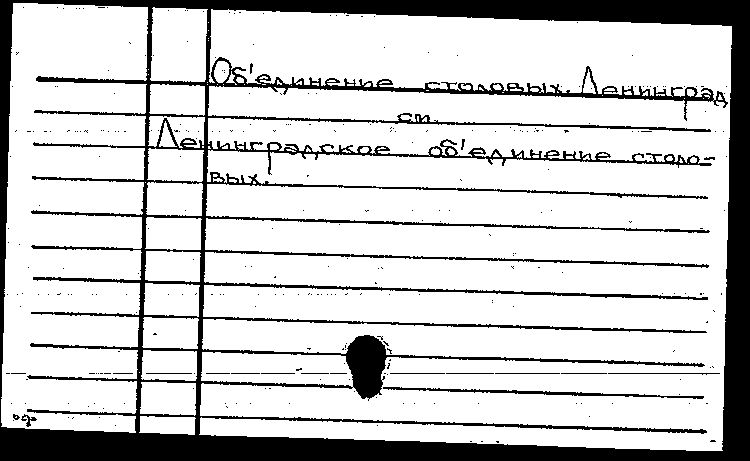 Об'единение столовых. Ленинград
см.
Ленинградское об'единение столо-
вых.